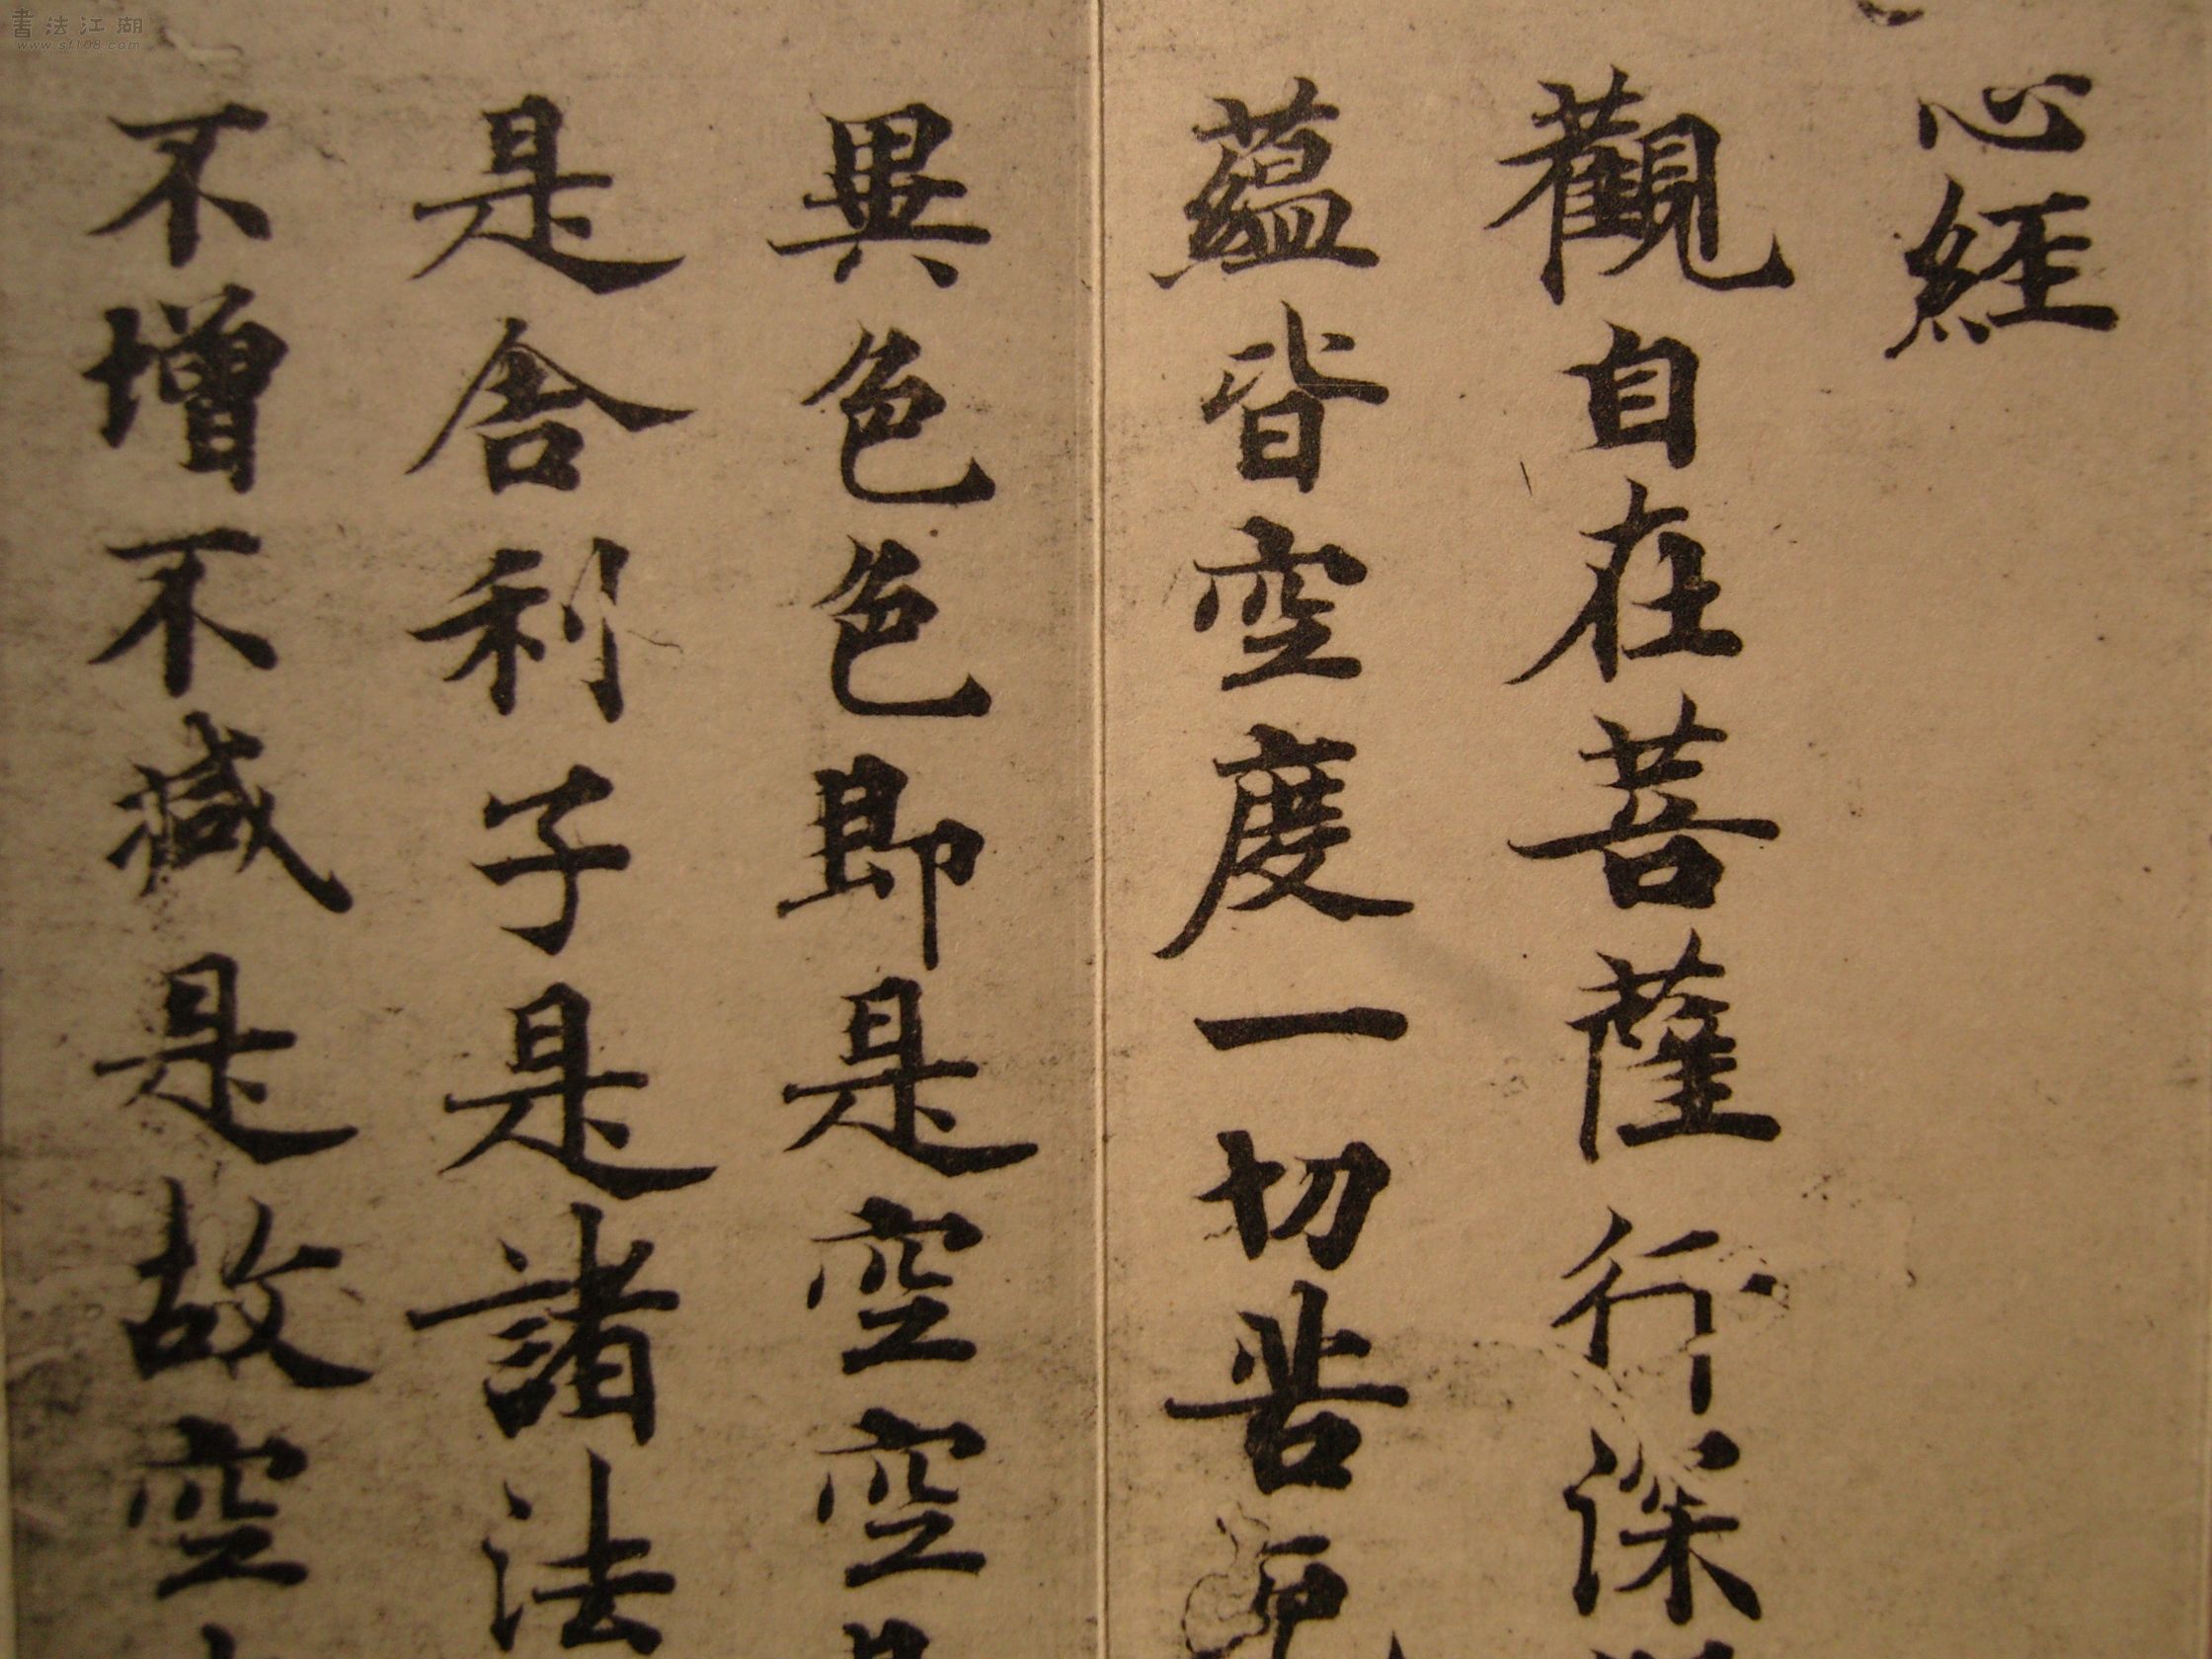 心經
觀自在菩薩行深
蘊皆空度一切苦
異色色即是空空
是舍利子是諸法
不增不減是故空
書法江湖
www.sf108.com